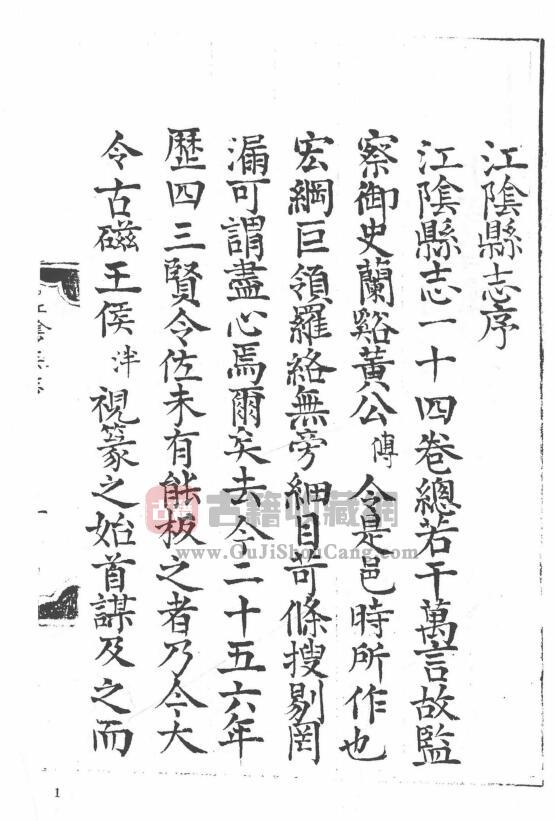 江陰縣志序
江陰縣志一十四卷總若干萬言故監
察御史蘭谿黃公傅令是邑時所作也
宏綱巨領羅絡無旁細目苛條搜剔罔
漏可謂盡心焉爾矣去今二十五六年
歷四三賢令佐未有能板之者乃今大
令古磁王侯泮視篆之始首謀及之而
古籍收藏網
www.GuJiShouCang.com
1